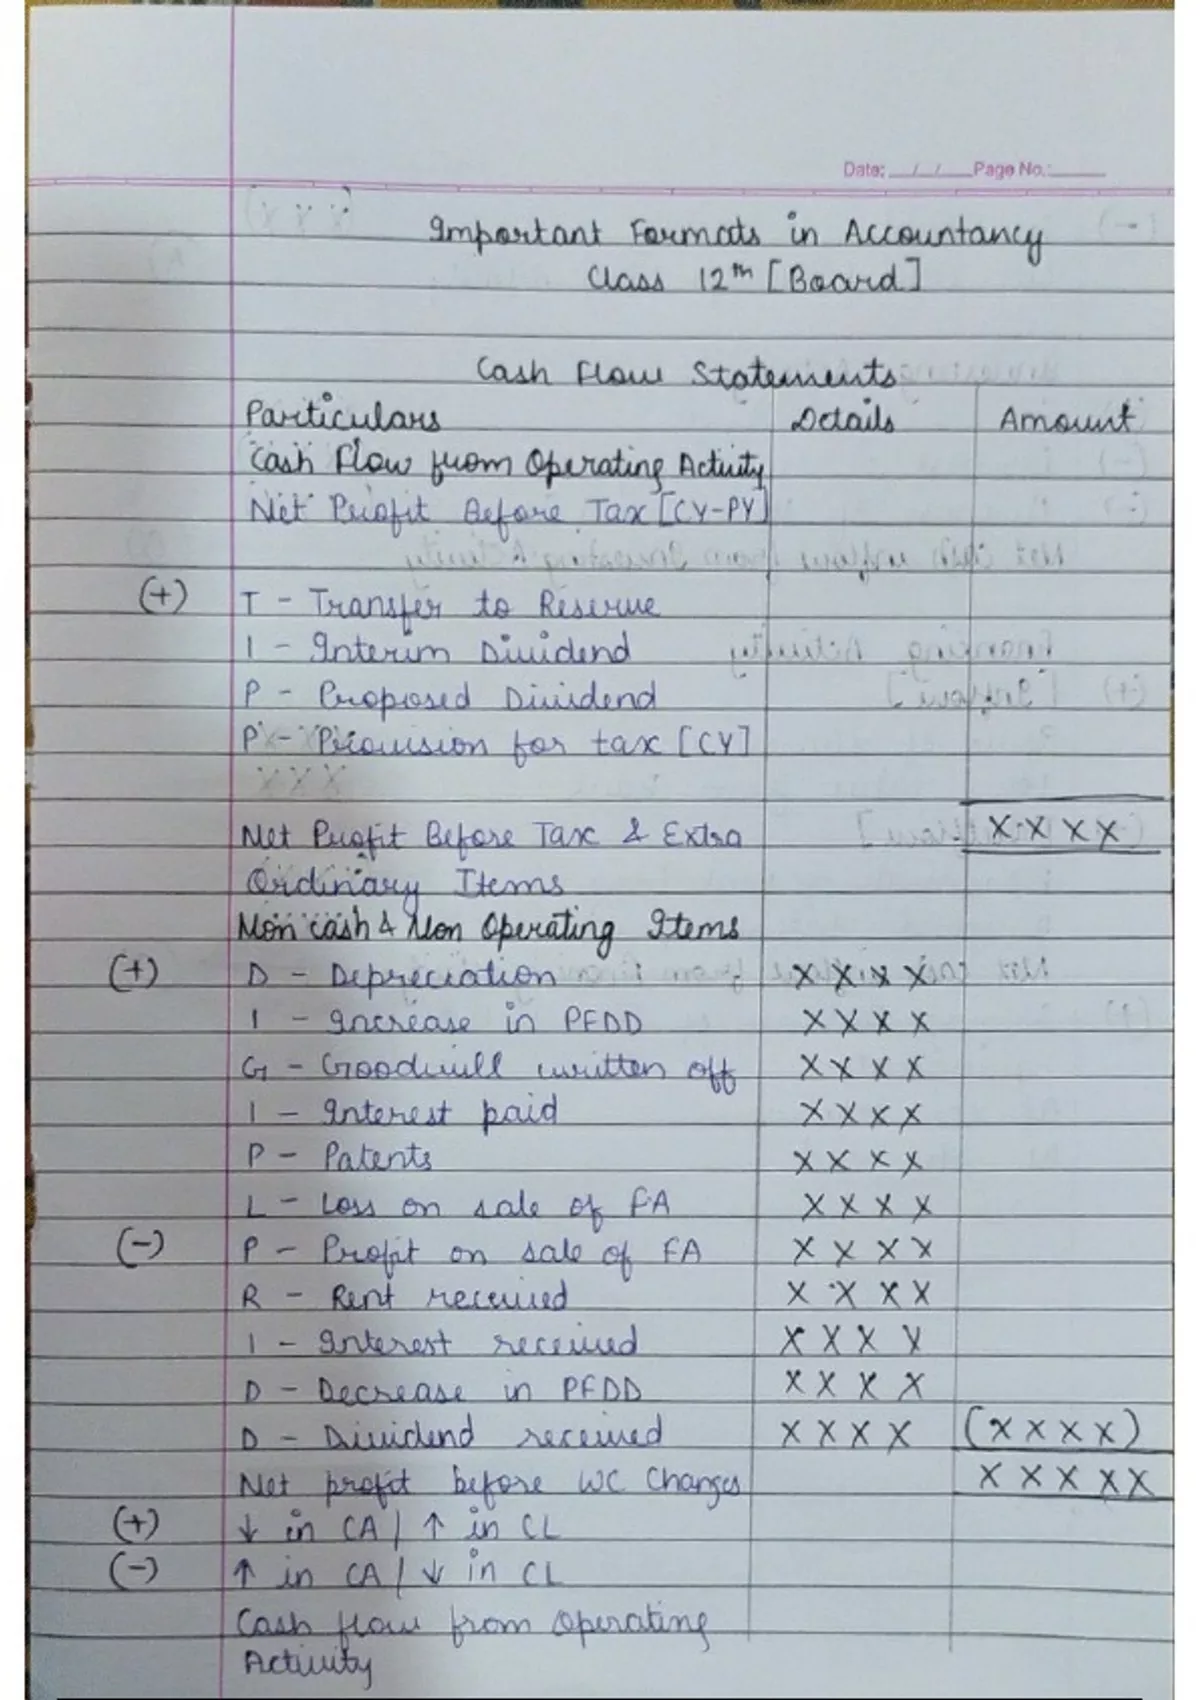 Date: __/__/__ Page No.:____
Important Formats in Accountancy
Class 12th [Board]
Cash Flow Statements
Particulars Details Amount
Cash Flow from Operating Activity
Net Profit Before Tax [CY-PY]
(+) T - Transfer to Reserve
I - Interim Dividend
P - Proposed Dividend
P - Provision for tax [CY]
Net Profit Before Tax & Extra X X X X
Ordinary Items
Non cash & Non Operating Items
(+) D - Depreciation X X X X
I - Increase in PFDD X X X X
G - Goodwill written off X X X X
I - Interest paid X X X X
P - Patents X X X X
L - Loss on sale of FA X X X X
(-) P - Profit on sale of FA X X X X
R - Rent received X X X X
I - Interest received X X X X
D - Decrease in PFDD X X X X
D - Dividend received X X X X (X X X X)
Net profit before WC Changes X X X X X
(+) ↓ in CA / ↑ in CL
(-) ↑ in CA / ↓ in CL
Cash flow from Operating
Activity